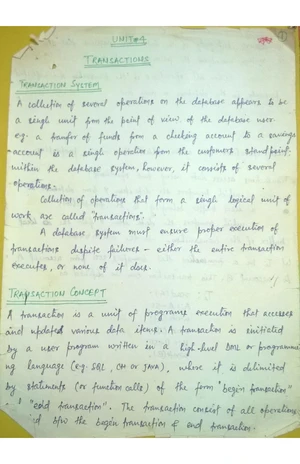 UNIT#4
1
TRANSACTIONS
TRANSACTION SYSTEM
A collection of several operations on the database appears to be
a single unit from the point of view of the database user.
eg. a transfer of funds from a checking account to a savings
account is a single operation from the customers standpoint.
within the database system, however, it consists of several
operations.
Collection of operations that form a single logical unit of
work are called 'transactions'.
A database system must ensure proper execution of
transactions despite failures - either the entire transaction
executes, or none of it does.
TRANSACTION CONCEPT
A transaction is a unit of programs execution that accesses
and updates various data items. A transaction is initiated
by a user program written in a high-level DML or programmi
ng language (e.g. SQL, C++ or JAVA), where it is delimited
by statements (or function calls) of the form "begin transaction"
"end transaction". The transaction consist of all operations
btw the begin transaction & end transaction.